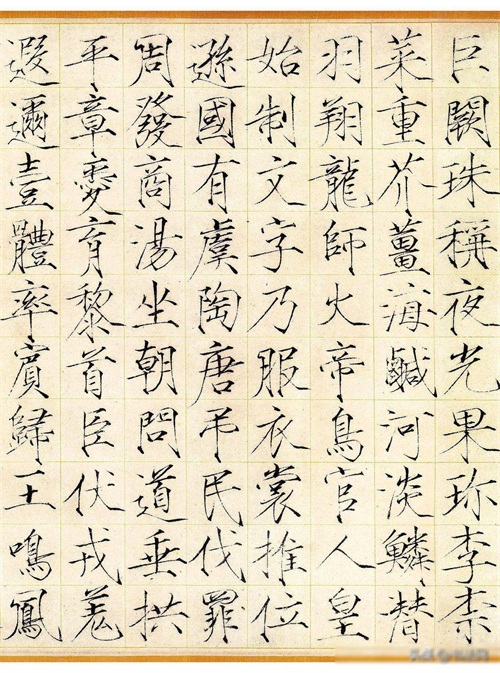 巨闕珠稱夜光果珎李柰
菜重芥薑海鹹河淡鱗潛
羽翔龍師火帝鳥官人皇
始制文字乃服衣裳推位
遜國有虞陶唐弔民伐罪
周發商湯坐朝問道垂拱
平章愛育黎首臣伏戎羌
遐邇壹體率賓歸王鳴鳳